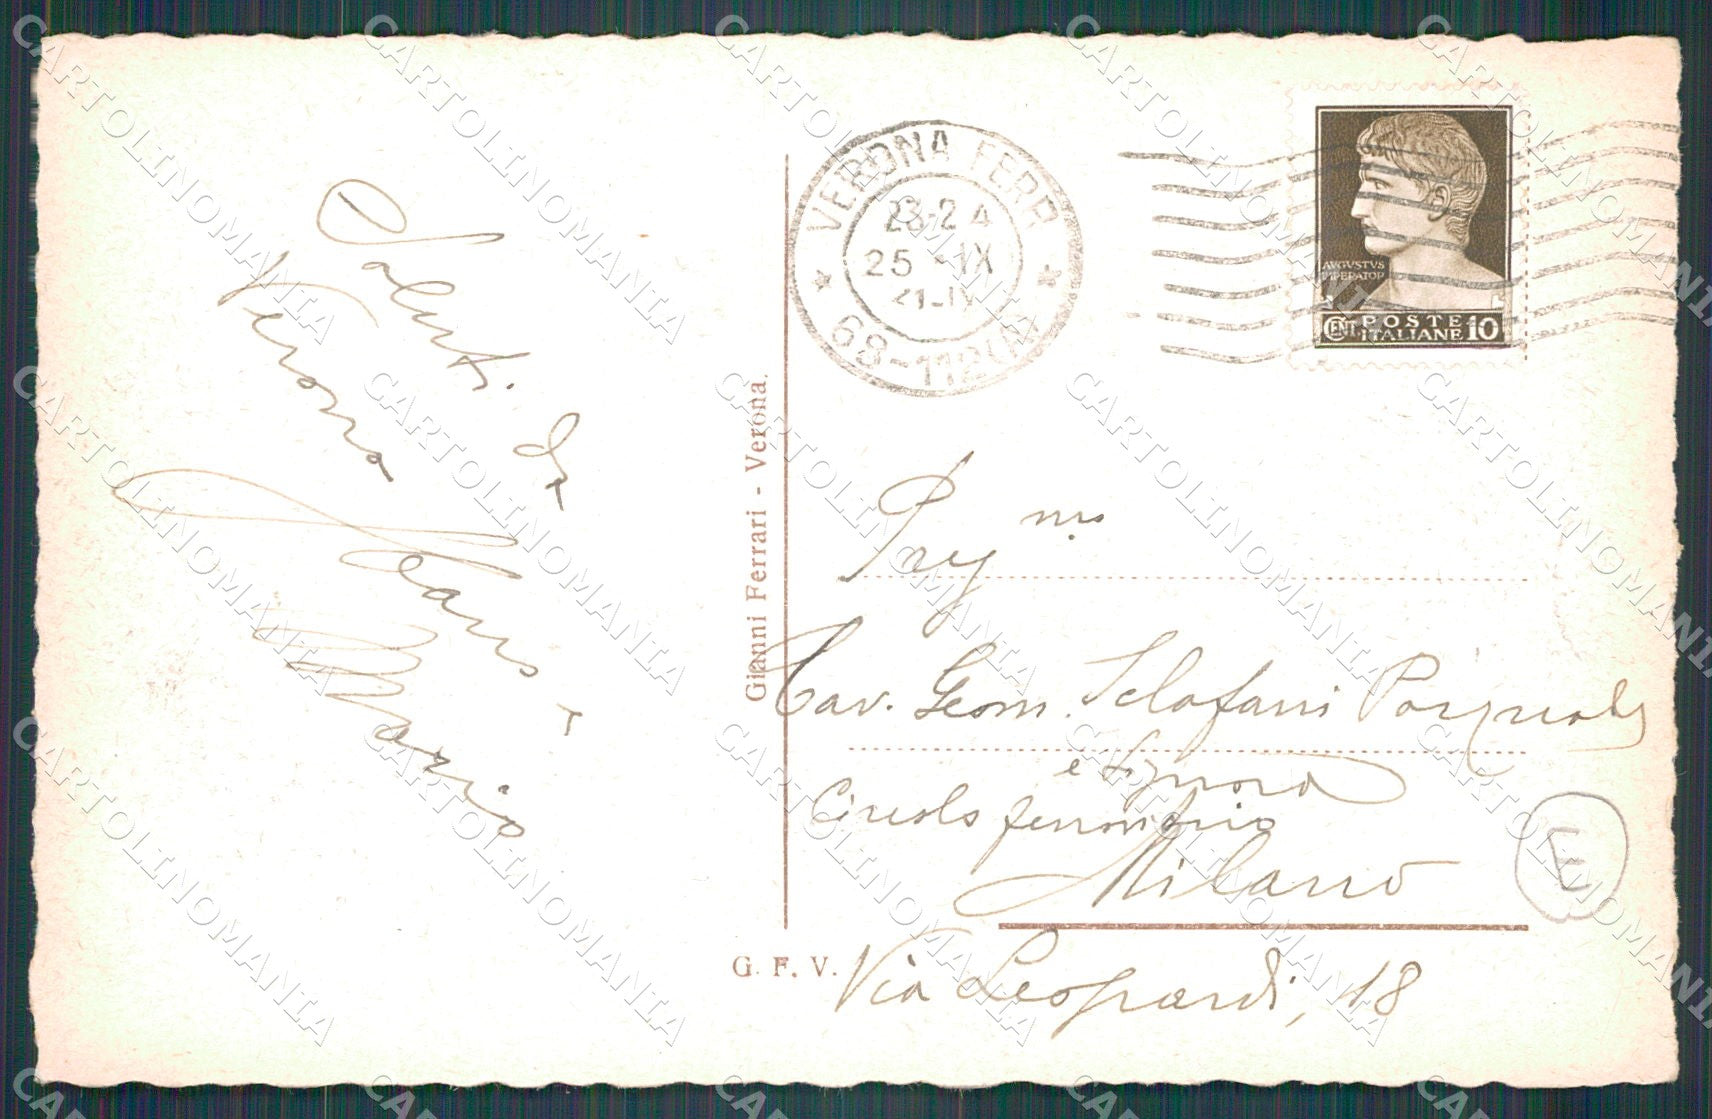 Saluti da
Verona
Mario
Gianni Ferrari - Verona.
G. F. V.
VERONA FERR
23-24
25-IX
AVGVSTVS
IMPERATOR
CENT. POSTE
ITALIANE 10
Preg mo
Cav. Geom. Sclafani Pasquale
e Signora
Circolo ferroviario
Milano
Via Leopardi, 18
E
CARTOLINOMANIA